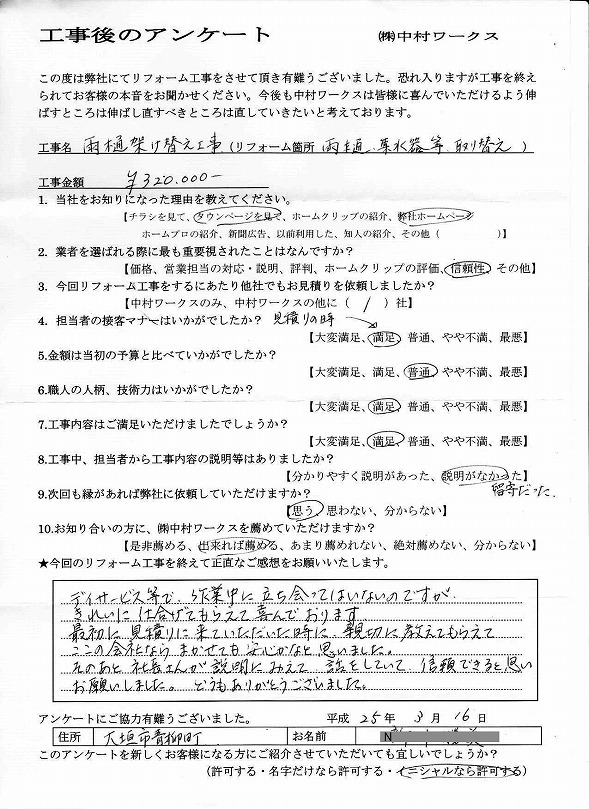 工事後のアンケート ㈱中村ワークス
この度は弊社にてリフォーム工事をさせて頂き有難うございました。恐れ入りますが工事を終え
られてお客様の本音をお聞かせください。今後も中村ワークスは皆様に喜んでいただけるよう伸
ばすところは伸ばし直すべきところは直していきたいと考えております。
工事名 雨樋架け替え工事 (リフォーム箇所 雨樋、集水器等 取り替え )
工事金額 ¥320.000-
1. 当社をお知りになった理由を教えてください。
【チラシを見て、タウンページを見て、ホームクリップの紹介、弊社ホームページ
ホームプロの紹介、新聞広告、以前利用した、知人の紹介、その他( )】
2. 業者を選ばれる際に最も重要視されたことはなんですか？
【価格、営業担当の対応・説明、評判、ホームクリップの評価、信頼性、その他】
3. 今回リフォーム工事をするにあたり他社でもお見積りを依頼しましたか？
【中村ワークスのみ、中村ワークスの他に ( / ) 社】
4. 担当者の接客マナーはいかがでしたか？ 見積りの時
【大変満足、満足、普通、やや不満、最悪】
5.金額は当初の予算と比べていかがでしたか？
【大変満足、満足、普通、やや不満、最悪】
6.職人の人柄、技術力はいかがでしたか？
【大変満足、満足、普通、やや不満、最悪】
7.工事内容はご満足いただけましたでしょうか？
【大変満足、満足、普通、やや不満、最悪】
8.工事中、担当者から工事内容の説明等はありましたか？
【分かりやすく説明があった、説明がなかった】
留守だった
9.次回も縁があれば弊社に依頼していただけますか？
【思う、思わない、分からない】
10.お知り合いの方に、㈱中村ワークスを薦めていただけますか？
【是非薦める、出来れば薦める、あまり薦めれない、絶対薦めない、分からない】
★今回のリフォーム工事を終えて正直なご感想をお願いいたします。
デイサービス等で、作業中に立ち会ってはいないのですが、
きれいに仕上げてもらえて喜んでおります。
最初に見積りに来ていただいた時に、親切に教えてもらえて
ここの会社なら まかせても安心かなと思いました。
そのあと 社長さんが説明にみえて 話をしていて、信頼できると思い
お願いしました。 どうもありがとうございました。
アンケートにご協力有難うございました。 平成 25年 3月 16日
住所 大垣市青柳町 お名前 N
このアンケートを新しくお客様になる方にご紹介させていただいても宜しいでしょうか？
(許可する・名字だけなら許可する・イニシャルなら許可する)